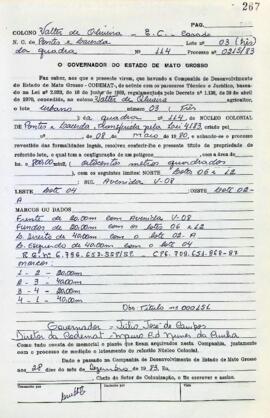 267
PAG.
COLONO Valter de Oliveira - E.C. - Casado
N.C. de Pontes e Lacerda Lote no 03 (três)
da quadra no 114 Processo no 0215/83
O GOVERNADOR DO ESTADO DE MATO GROSSO
Faz saber, aos que a presente virem, que havendo a Companhia de Desenvolvimento
do Estado de Mato Grosso - CODEMAT, de acordo com os pareceres Técnico e Jurídico, basea-
dos na Lei nº de 16 de junho de regulamentada pelo Decreto nº 1.138, de 29 de abril
de 1970, concedido ao Valter de Oliveira agricultor,
o lote urbano nº 03 (três)
da quadra nº 114, DO NÚCLEO COLONIAL
DE Pontes e Lacerda, pela Lei 4183,
de 08 de maio de 1980, e estando o processo
revestido das formalidades legais, resolveu conferir-lhe o presente título de propriedade
do referido lote, o qual tem a configuração de um polígono
e área de 800,00 (oitocentos metros quadrados
), com os seguintes limites: NORTE lotes 06 e 12
SUL Avenida V-08
LESTE lote 04 OESTE lote 02-
A
MARCOS OU DADOS
Frente de 20,00m com Avenida V-08
Fundos de 20,00m com os lotes 06 e 12
L. Direito de 40,00m com o lote 02-A
L. Esquerdo de 40,00m com o lote 04
Marcos:
1 - 2 - 20,00m
2 - 3 - 40,00m
3 - 4 - 20,00m
4 - 1 - 40,00m
Obs: Título nº 000156
Governador - Júlio José de Campos
Diretor da Codemat -
Como tudo consta de memorial e planta que ficam arquivados nesta Companhia, juntamente
com o processo de medição e loteamento do referido Núcleo Colonial.
Dado e passado na Companhia de Desenvolvimento do Estado de Mato Grosso
aos 28 dias de Dezembro de 1983. Eu,
Chefe do Setor de Colonização, o fiz escrever e assino.